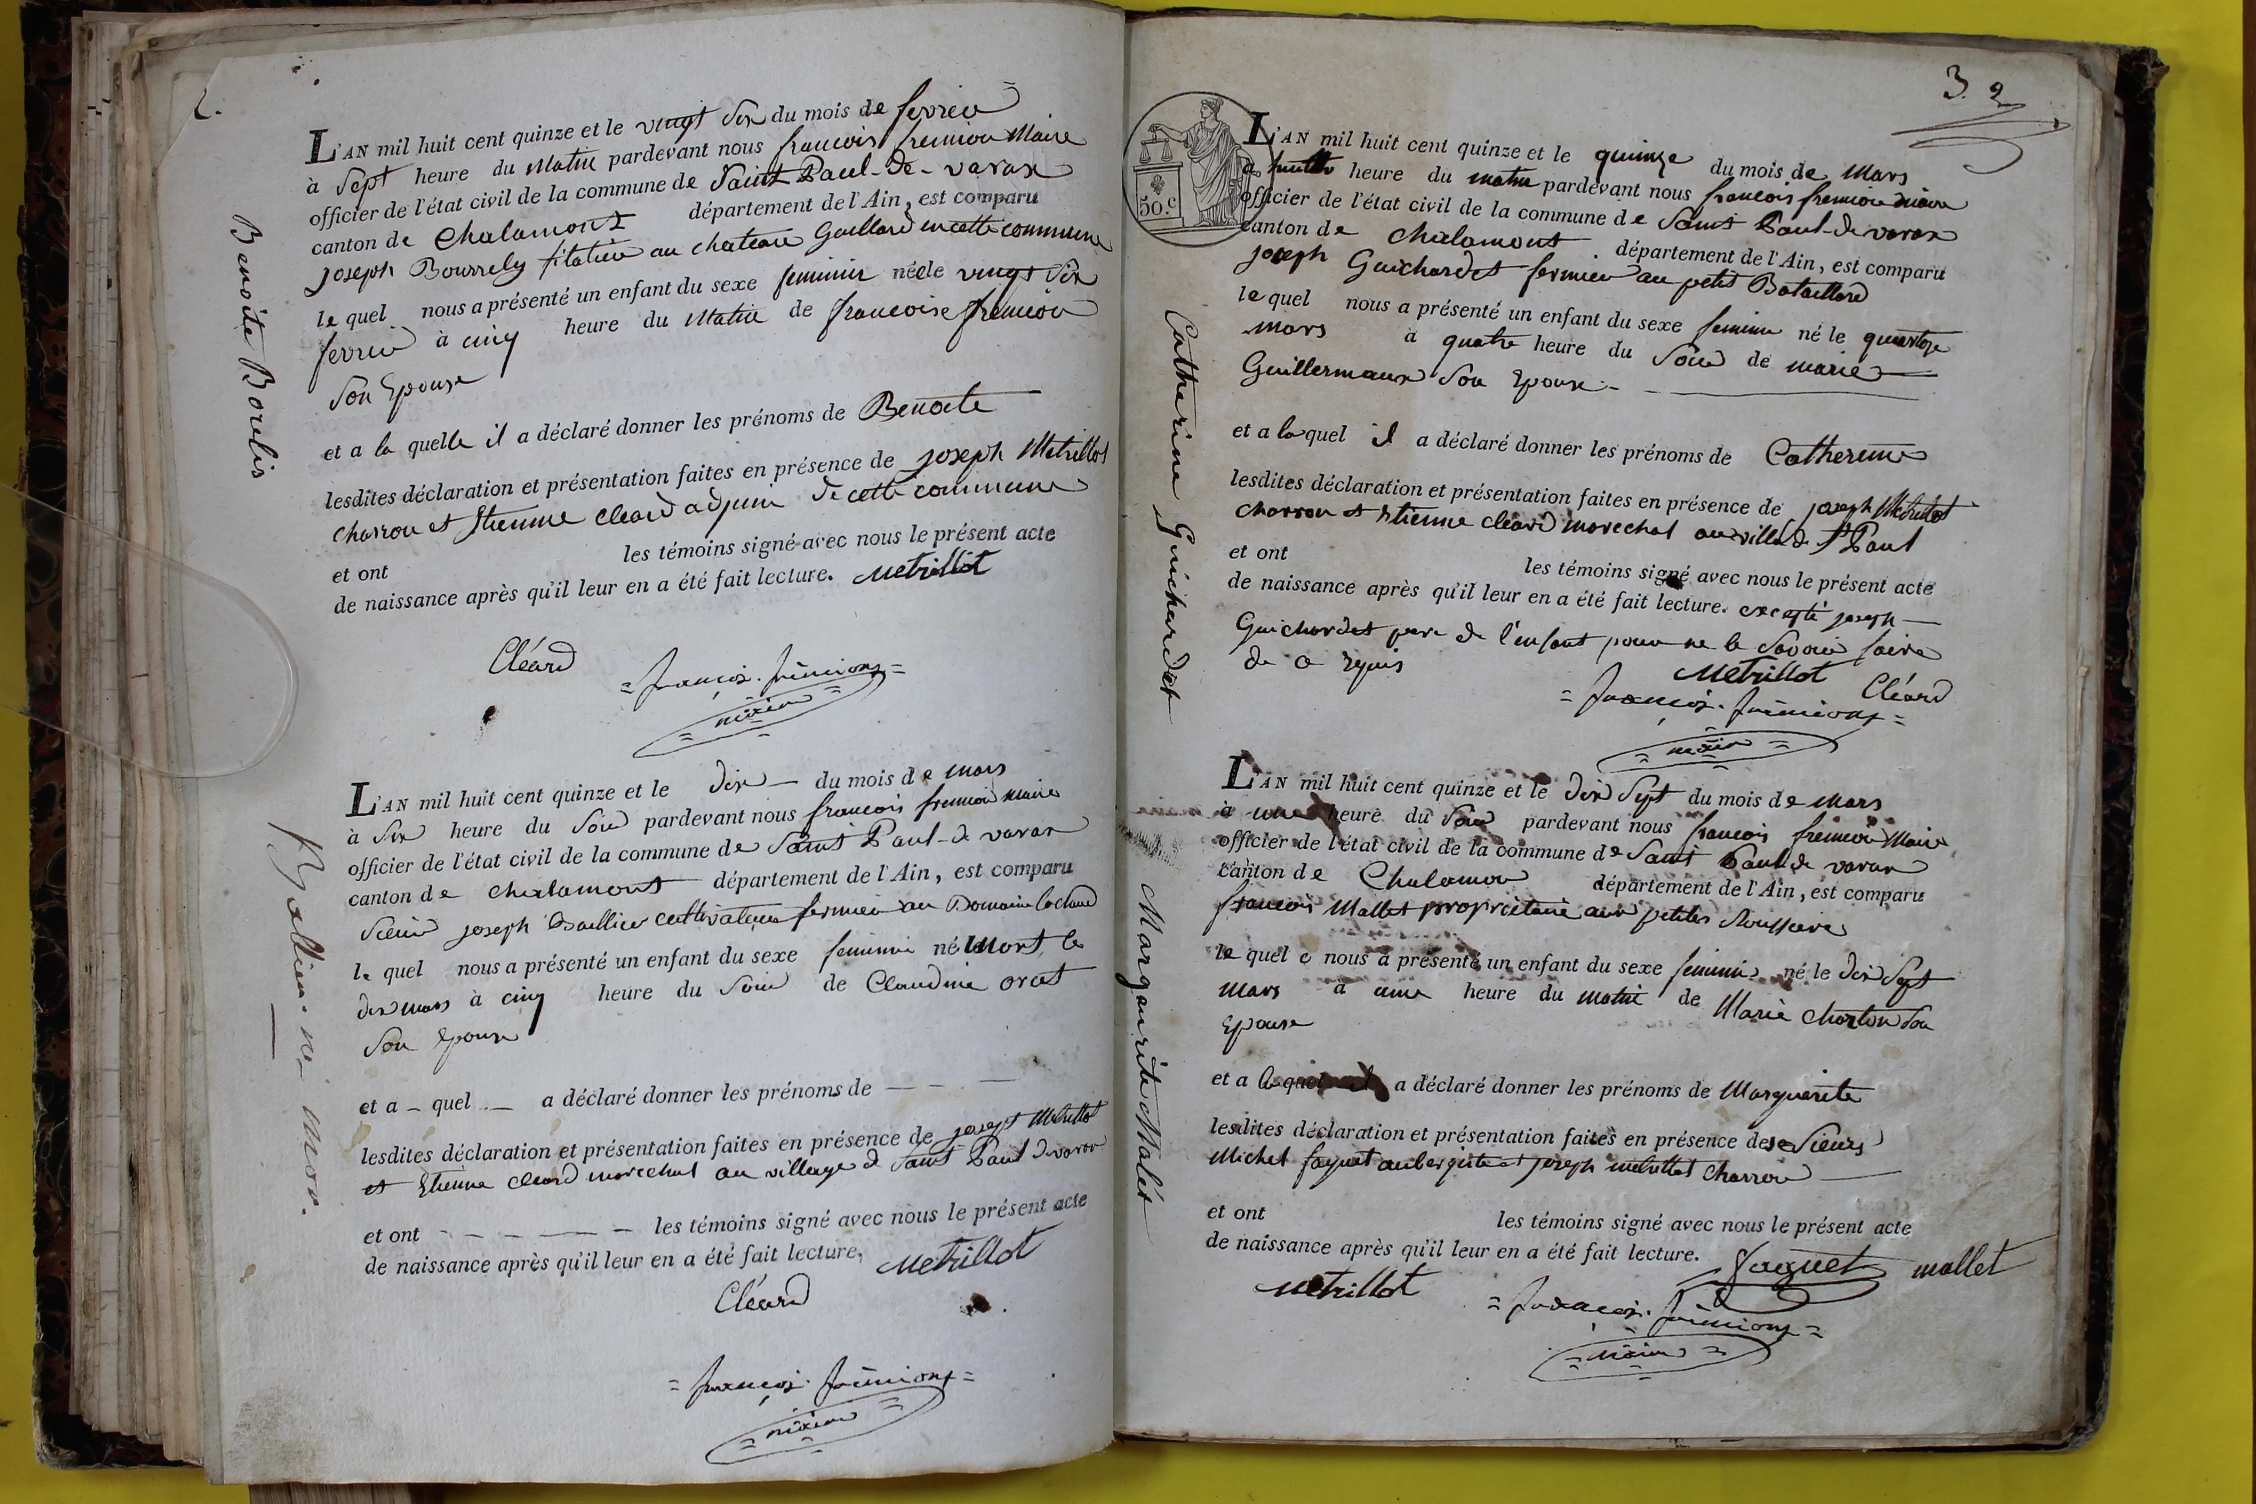 2.
L'AN mil huit cent quinze et le vingt Six du mois de fevrier
à Sept heure du Matin pardevant nous francois fremion Maire
officier de l'état civil de la commune de Saint Paul-de-varax
canton de Chalamont département de l'Ain, est comparu
joseph Bourrely au chateau Gaillard en cette commune
le quel nous a présenté un enfant du sexe feminin née le vingt Six
fevrier à cinq heure du Matin de francoise fremion
Son Epouse
et a la quelle il a déclaré donner les prénoms de Benoite
lesdites déclaration et présentation faites en présence de joseph Metrillot
charron et Etienne cleard adjoint de cette commune
et ont les témoins signé avec nous le présent acte
de naissance après qu'il leur en a été fait lecture. Metrillot
Cléard
= françois. frémion =
= maire =
Benoite Bourlis
L'AN mil huit cent quinze et le dix — du mois de mars
à Six heure du Soir pardevant nous francois fremion maire
officier de l'état civil de la commune de Saint Paul-de varax
canton de chalamont département de l'Ain, est comparu
Sieur joseph Baillier cultivateur fermier au Domaine
le quel nous a présenté un enfant du sexe feminin né Mort le
dix mars à cinq heure du Soir de Claudine orcet
Son Epouse
et a — quel — a déclaré donner les prénoms de — — —
lesdites déclaration et présentation faites en présence de joseph Metrillot
et Etienne cleard marechal au village de Saint Paul de varax
et ont — — — — les témoins signé avec nous le présent acte
de naissance après qu'il leur en a été fait lecture. Metrillot
Cléard
= françois. frémion =
= maire =
né mor.
3. 2
50.c
L'AN mil huit cent quinze et le quinze du mois de Mars
à huitte heure du matin pardevant nous francois fremion maire
officier de l'état civil de la commune de Saint Paul-de varax
canton de chalamont département de l'Ain, est comparu
joseph Guichardet fermier au petit Bataillard
le quel nous a présenté un enfant du sexe feminin né le quatorze
mars à quatre heure du Soir de marie
Guillermaux Son Epouse
et a la quel il a déclaré donner les prénoms de Catherine
lesdites déclaration et présentation faites en présence de joseph Metrillot
charron et Etienne cléard marechal au village St Paul
et ont les témoins signé avec nous le présent acte
de naissance après qu'il leur en a été fait lecture. excepté joseph —
Guichardet pere de l'enfant pour ne le Savoir faire
de ce requis
Metrillot
Cléard
= françois. frémion =
= maire =
Catherine Guichardet
L'AN mil huit cent quinze et le dix Sept du mois de mars
à une heure du Soir pardevant nous francois fremion Maire
officier de l'état civil de la commune de Saint Paul de varax
canton de Chalamon département de l'Ain, est comparu
francois Mallet proprietaire aux petites
le quel nous a présenté un enfant du sexe feminin né le dix Sept
mars à une heure du matin de Marie Chorton Son
Epouse
et a la quel il a déclaré donner les prénoms de Marguerite
lesdites déclaration et présentation faites en présence de Sieurs
Michel faguet aubergiste et joseph metrillot Charron —
et ont les témoins signé avec nous le présent acte
de naissance après qu'il leur en a été fait lecture. faguet mallet
Metrillot
= françois. frémion =
= maire =
Margaurite Malet